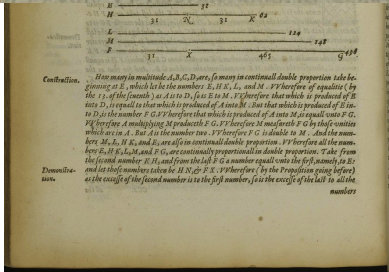 E 31
H 31 N 31 K 62
L 124
M 248
F 31 X 465 G
Construction.
How many in multitude A,B,C,D, are, so many in continuall double proportion take be-
ginning at E, which let be the numbers E, H K, L, and M. VVherefore of equalitie (by
the 13. of the seuenth) as A is to D, so is E to M. VVherefore that which is produced of E
into D, is equall to that which is produced of A into M. But that which is produced of E in-
to D, is the number F G. VVherefore that which is produced of A into M, is equall vnto F G.
VVherefore A multiplying M produceth F G. VVherefore M measureth F G by those vnities
which are in A. But A is the number two. VVherefore F G is double to M. And the num-
bers M, L, H K, and E, are also in continuall double proportion. VVherefore all the num-
bers E, H K, L, M, and F G, are continually proportionall in double proportion. Take from
the second number K H, and from the last F G a number equall vnto the first, namely, to E:
Demonstra-
tion.
and let those numbers taken be H N, & F X. VVherefore (by the Proposition going before)
as the excesse of the second number is to the first number, so is the excesse of the last to all the
numbers